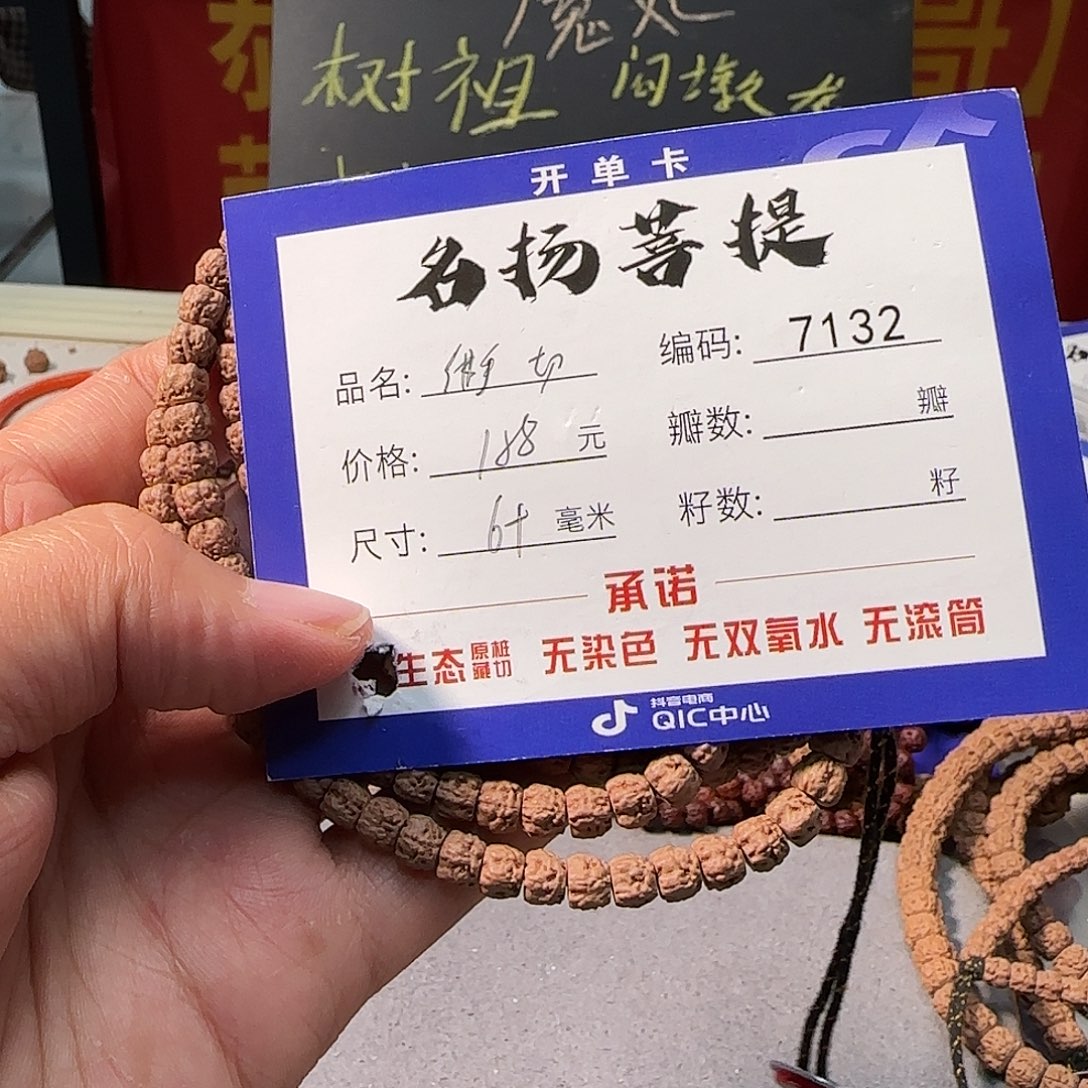 魔妃
树祖 闷墩
哥
开单卡
名扬菩提
品名: 编码: 7132
价格: 188 元 瓣数: 瓣
尺寸: 6+ 毫米 籽数: 籽
承诺
生态 原桩藏切 无染色 无双氧水 无滚筒
抖音电商
QIC中心